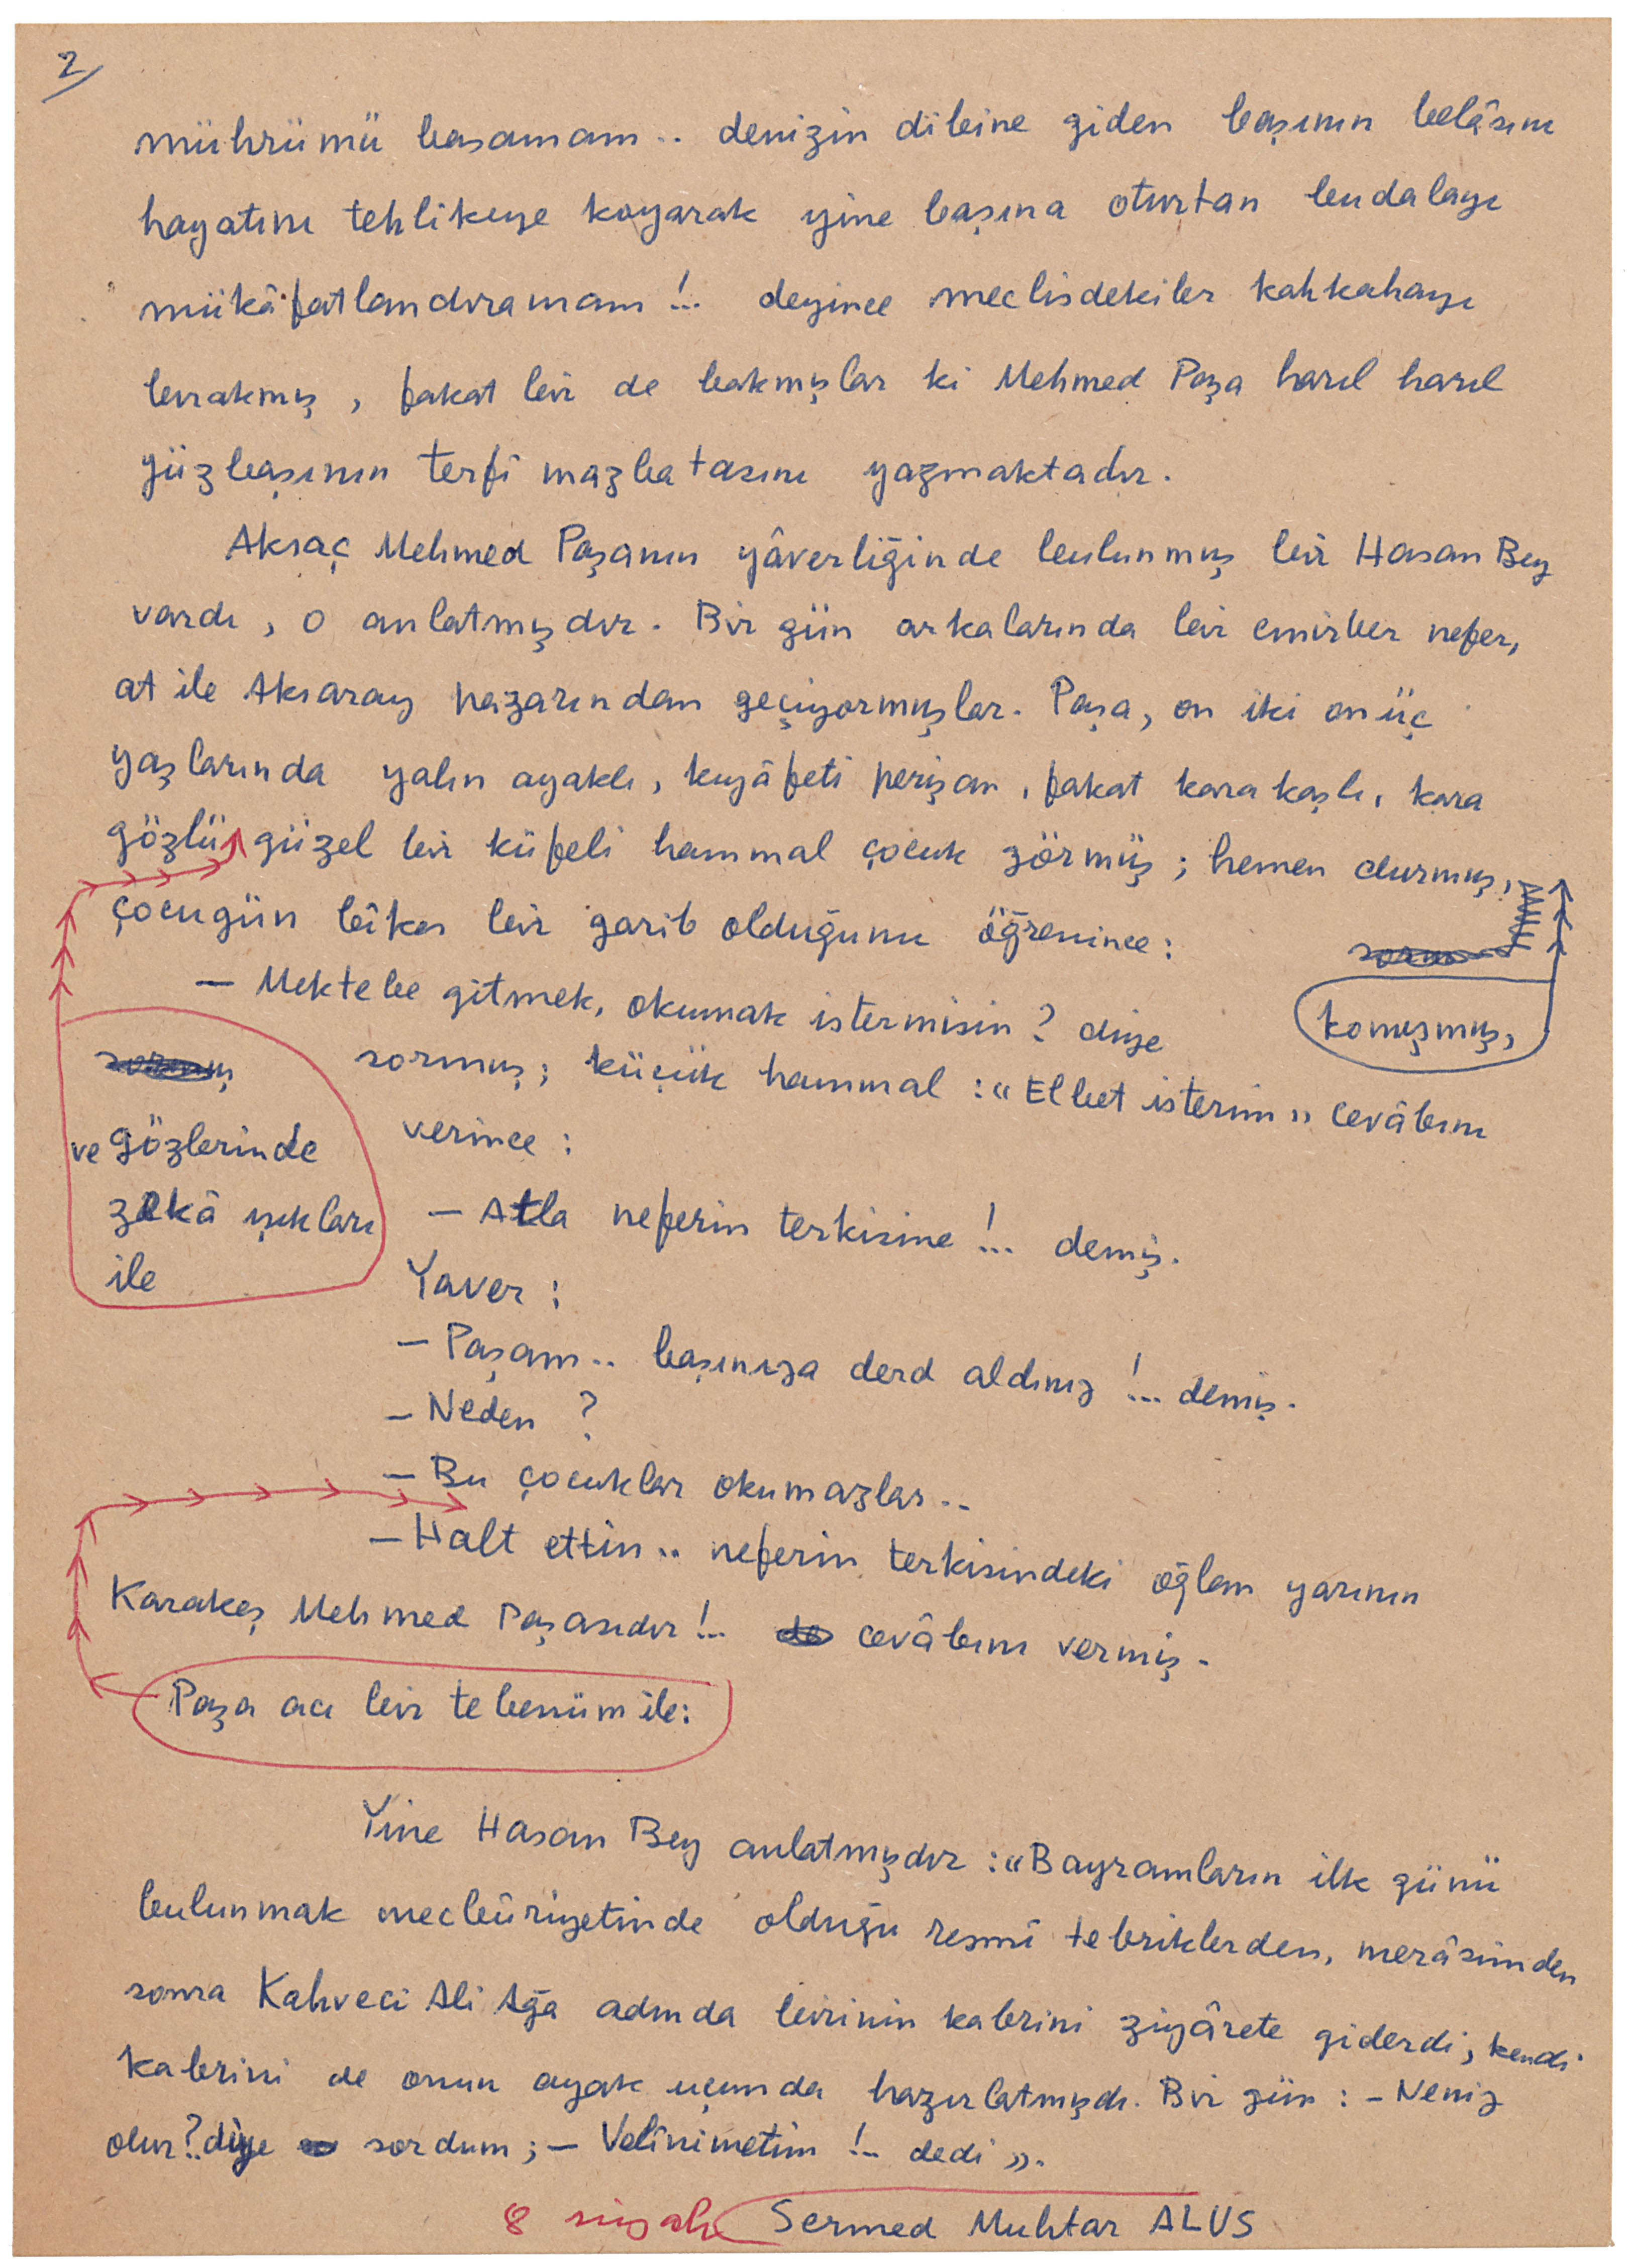 2/
mührümü basamam.. denizin dibine giden başının belâsını
hayatını tehlikeye koyarak yine başına oturtan budalayı
mükâfatlandıramam!.. deyince meclisdekiler kahkahayı
bırakmış, fakat bir de bakmışlar ki Mehmed Paşa harıl harıl
yüzbaşının terfi mazbatasını yazmaktadır.
Aksaç Mehmed Paşanın yâverliğinde bulunmuş bir Hasan Bey
vardı, o anlatmışdır. Bir gün arkalarında bir emirber nefer,
at ile Aksaray pazarından geçiyormuşlar. Paşa, on iki onüç
yaşlarında yalın ayaklı, kıyâfeti perişan, fakat kara kaşlı, kara
gözlü, güzel bir küfeli hammal çocuk görmüş; hemen durmuş,
çocuğun bîkes bir garib olduğunu öğrenince:
konuşmuş,
— Mektebe gitmek, okumak istermisin? diye
sormuş; küçük hammal: «Elbet isterim» cevâbını
verince:
ve gözlerinde
zekâ ışıkları
ile
— Atla neferin terkisine!.. demiş.
Yaver:
— Paşam.. başınıza derd aldınız!.. demiş.
— Neden?
— Bu çocuklar okumazlar..
— Halt ettin.. neferin terkisindeki oğlan yarının
Karakaş Mehmed Paşasıdır!.. cevâbını vermiş.
Paşa acı bir tebessüm ile:
Yine Hasan Bey anlatmışdır: «Bayramların ilk günü
bulunmak mecbûriyetinde olduğu resmî tebriklerden, merâsimden
sonra Kahveci Ali Ağa adında birinin kabrini ziyârete giderdi; kendi
kabrini de onun ayak ucunda hazırlatmışdı. Bir gün: — Neniz
olur?.. diye sordum; — Velînimetim!.. dedi».
8 siyah Sermed Muhtar ALUS